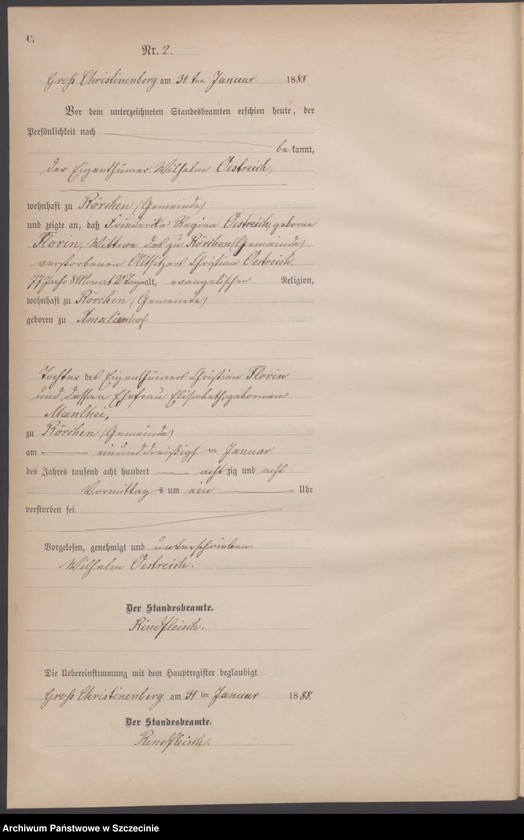 C.
Nr. 2.
Groß Christinenberg am 31 ten Januar 1888
Vor dem unterzeichneten Standesbeamten erschien heute, der
Persönlichkeit nach
be kannt,
der Eigenthümer Wilhelm Oestreich,
wohnhaft zu Rörchen (Gemeinde)
und zeigte an, daß Friederike Regina Oestreich, geborne
Florin, Wittwe des zu Rörchen (Gemeinde)
verstorbenen Altsitzers Christian Oestreich,
77 Jahr 8 Monat 2 Tage alt, evangelischer Religion,
wohnhaft zu Rörchen (Gemeinde)
geboren zu Amalienhof
Tochter des Eigenthümers Christian Florin
und dessen Ehefrau Elisabeth, gebornen
zu Rörchen (Gemeinde)
am einunddreißigsten Januar
des Jahres tausend acht hundert acht zig und acht
Vormittags um ein Uhr
verstorben sei.
Vorgelesen, genehmigt und unterschrieben
Wilhelm Oestreich.
Der Standesbeamte.
Rindfleisch.
Die Uebereinstimmung mit dem Hauptregister beglaubigt
Groß Christinenberg am 31 ten Januar 1888.
Der Standesbeamte.
Rindfleisch.
Archiwum Państwowe w Szczecinie